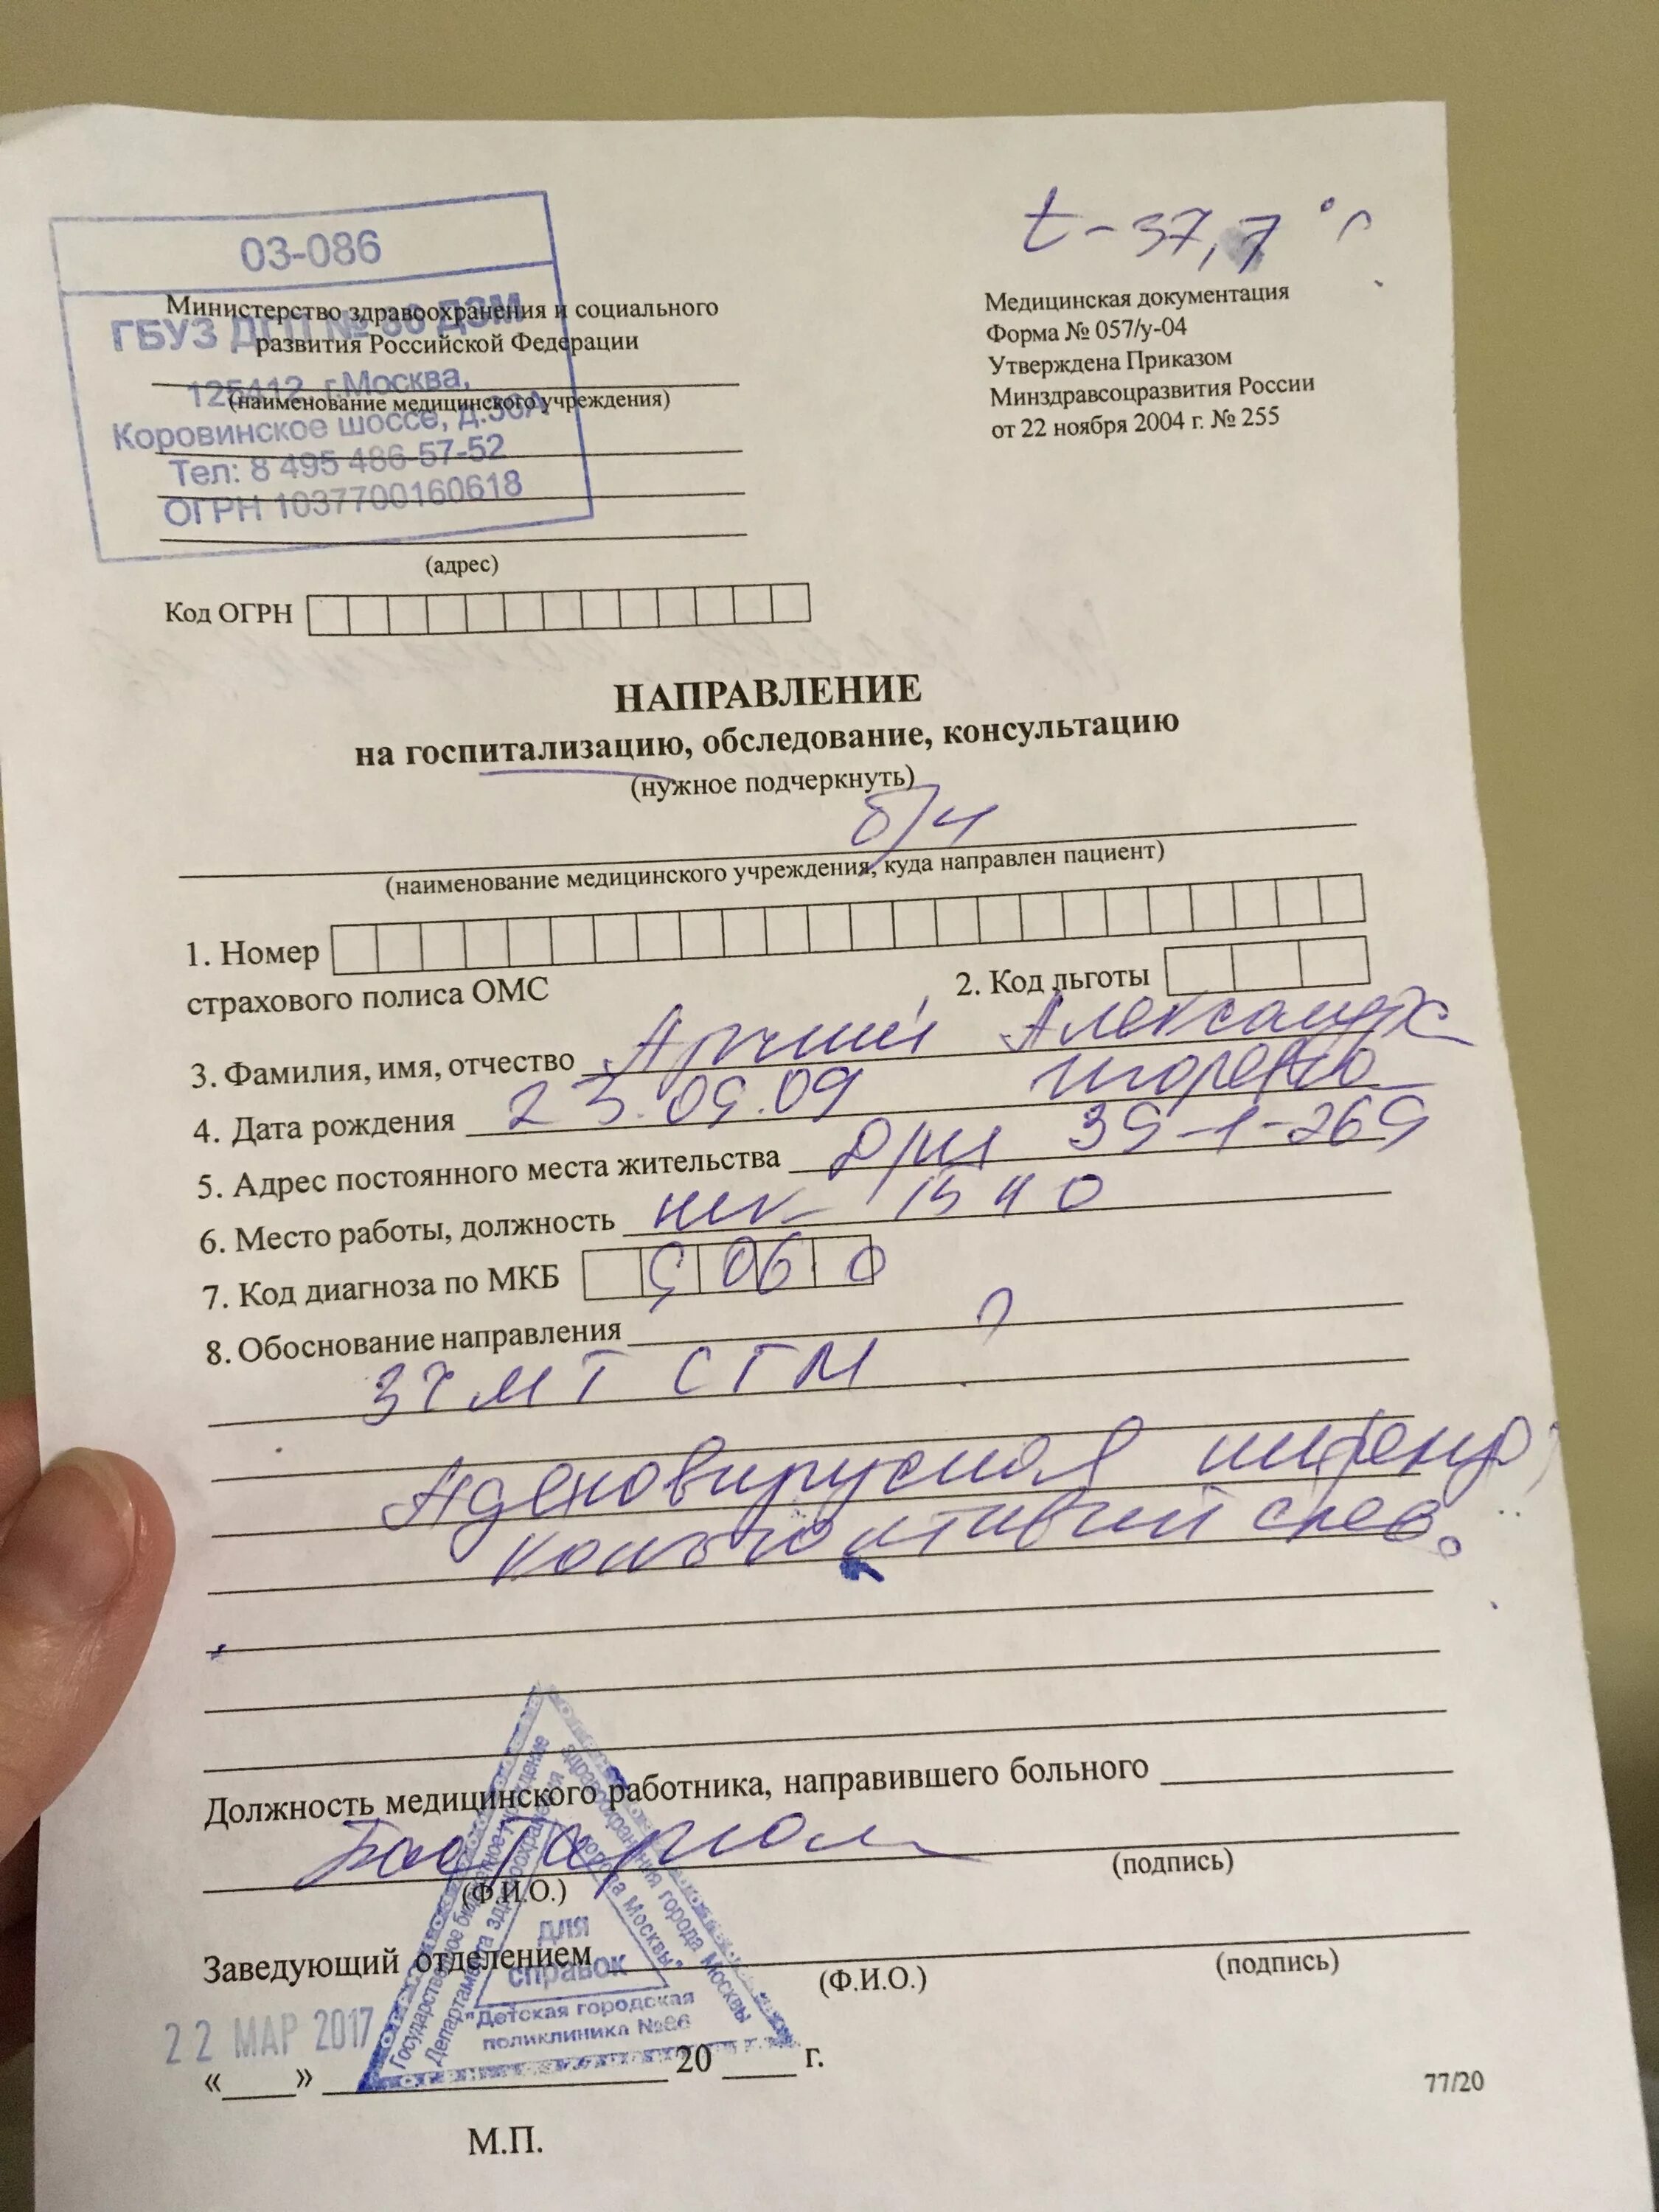 t - 37,7 °
03-086
ГБУЗ ДГП № 86 ДЗМ
125412, г.Москва,
Коровинское шоссе, д.36А
Тел: 8 495 486-57-52
ОГРН 1037700160618
Министерство здравоохранения и социального
развития Российской Федерации
(наименование медицинского учреждения)
(адрес)
Код ОГРН
Медицинская документация
Форма № 057/у-04
Утверждена Приказом
Минздравсоцразвития России
от 22 ноября 2004 г. № 255
НАПРАВЛЕНИЕ
на госпитализацию, обследование, консультацию
(нужное подчеркнуть)
(наименование медицинского учреждения, куда направлен пациент)
1. Номер
страхового полиса ОМС
2. Код льготы
3. Фамилия, имя, отчество Александр
Игоревич
4. Дата рождения 23.09.09
5. Адрес постоянного места жительства 39-1-269
6. Место работы, должность 1540
7. Код диагноза по МКБ S 06.0
8. Обоснование направления
ЗЧМТ СГМ ?
Аденовирусная
Должность медицинского работника, направившего больного
(Ф.И.О.)
(подпись)
Заведующий отделением
(Ф.И.О.)
(подпись)
Государственное бюджетное учреждение здравоохранения города Москвы
Департамента здравоохранения города Москвы
для
справок
"Детская городская
поликлиника №86
22 МАР 2017
« » 20 г.
77/20
М.П.